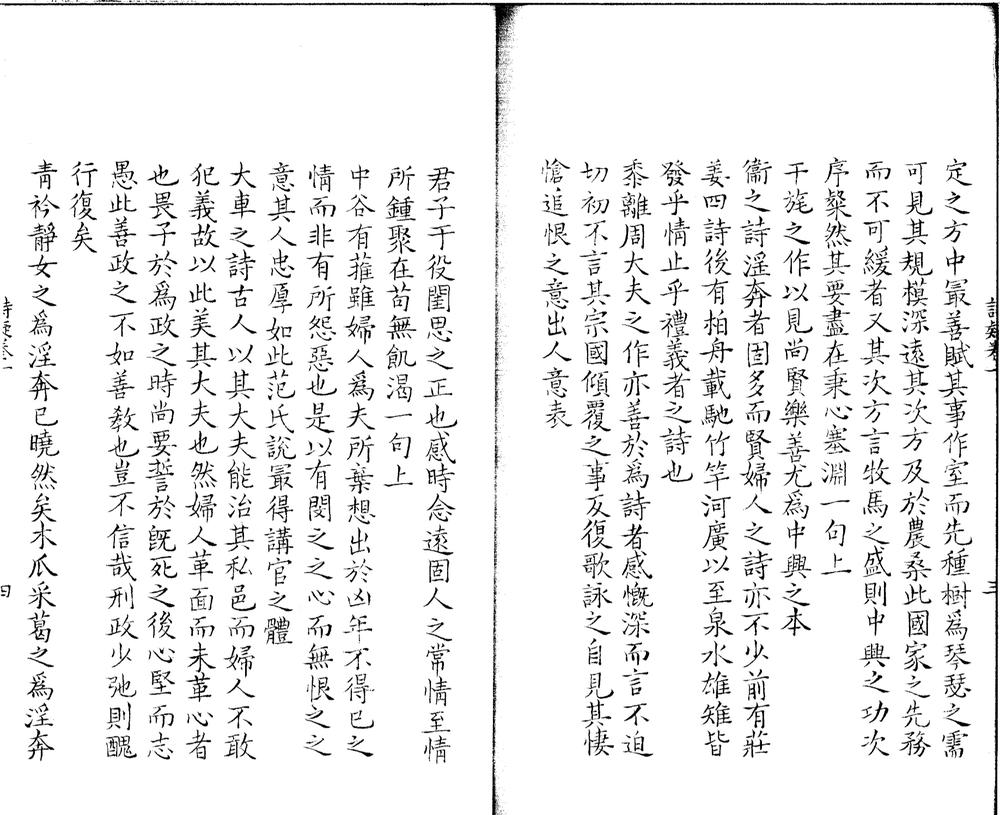 定之方中最善賦其事作室而先種樹為琴瑟之需
可見其規模深遠其次方及於農桑此國家之先務
而不可緩者又其次方言牧馬之盛則中興之功次
序粲然其要盡在秉心塞淵一句上
干旄之作以見尚賢樂善尤為中興之本
衞之詩淫奔者固多而賢婦人之詩亦不少前有莊
姜四詩後有柏舟載馳竹竿河廣以至泉水雄雉皆
發乎情止乎禮義者之詩也
黍離周大夫之作亦善於為詩者感慨深而言不迫
切初不言其宗國傾覆之事反復歌詠之自見其悽
愴追恨之意出人意表
三
君子于役閨思之正也感時念遠固人之常情至情
所鍾聚在苟無飢渴一句上
中谷有蓷雖婦人為夫所棄想出於凶年不得已之
情而非有所怨惡也是以有閔之之心而無恨之之
意其人忠厚如此范氏說最得講官之體
大車之詩古人以其大夫能治其私邑而婦人不敢
犯義故以此美其大夫也然婦人革面而未革心者
也畏子於為政之時尚要誓於旣死之後心堅而志
愚此善政之不如善教也豈不信哉刑政少弛則醜
行復矣
靑衿靜女之為淫奔已曉然矣木瓜采葛之為淫奔
四